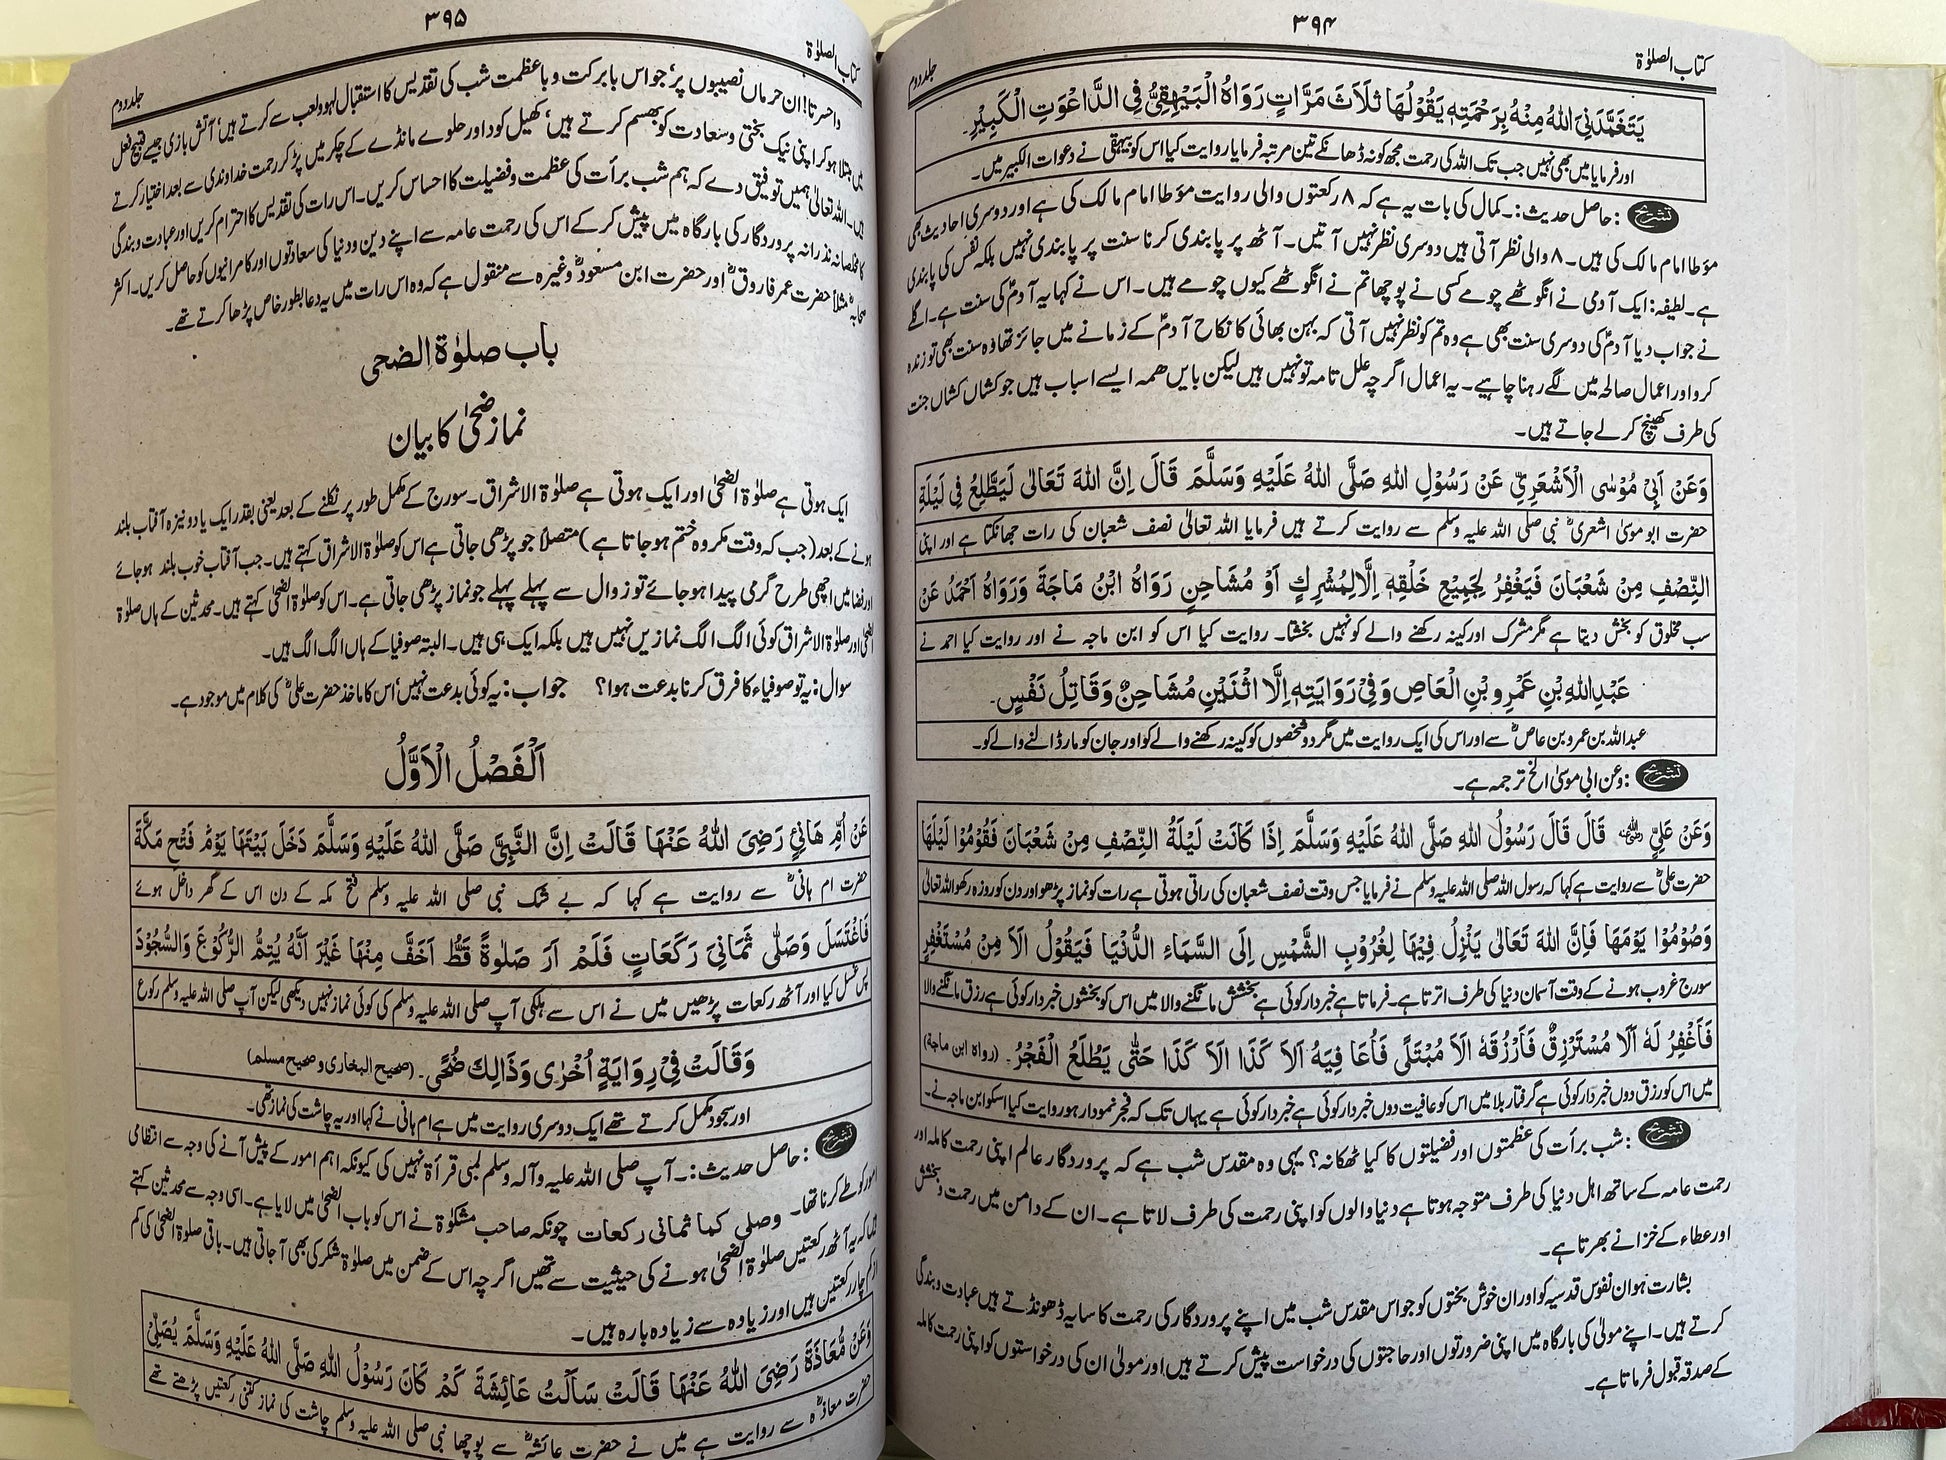 ۳۹۴
کتاب الصلوٰۃ
جلد دوم
يَتَغَمَّدَنِيَ اللهُ مِنْهُ بِرَحْمَتِهٖ يَقُوْلُهَا ثَلَاثَ مَرَّاتٍ رَوَاهُ الْبَيْهَقِيُّ فِي الدَّاعْوَتِ الْكَبِيْرِ۔
اور فرمایا میں بھی نہیں جب تک اللہ کی رحمت مجھ کو نہ ڈھانکے تین مرتبہ فرمایا روایت کیا اس کو بیہقی نے دعوات الکبیر میں۔
تشریح: حاصل حدیث:۔ کمال کی بات یہ ہے کہ ۸ رکعتوں والی روایت مؤطا امام مالک کی ہے اور دوسری احادیث بھی
مؤطا امام مالک کی ہیں۔ ۸ والی نظر آتی ہیں دوسری نظر نہیں آتیں۔ آٹھ پر پابندی کرنا سنت پر پابندی نہیں بلکہ نفس کی پابندی
ہے۔ لطیفہ: ایک آدمی نے انگوٹھے چومے کسی نے پوچھا تم نے انگوٹھے کیوں چومے ہیں۔ اس نے کہا یہ آدمؑ کی سنت ہے۔ اگلے
نے جواب دیا آدمؑ کی دوسری سنت بھی ہے وہ تم کو نظر نہیں آتی کہ بہن بھائی کا نکاح آدمؑ کے زمانے میں جائز تھا وہ سنت بھی تو زندہ
کرو اور اعمال صالحہ میں لگے رہنا چاہیے۔ یہ اعمال اگرچہ علل تامہ تو نہیں ہیں لیکن بایں ھمہ ایسے اسباب ہیں جو کشاں کشاں جنت
کی طرف کھینچ کر لے جاتے ہیں۔
وَعَنْ اَبِيْ مُوْسٰى الْاَشْعَرِيِّ عَنْ رَسُوْلِ اللهِ صَلَّى اللهُ عَلَيْهِ وَسَلَّمَ قَالَ اِنَّ اللهَ تَعَالٰى لَيَطَّلِعُ فِيْ لَيْلَةِ
حضرت ابو موسیٰ اشعریؓ نبی صلی اللہ علیہ وسلم سے روایت کرتے ہیں فرمایا اللہ تعالیٰ نصف شعبان کی رات جھانکتا ہے اور اپنی
النِّصْفِ مِنْ شَعْبَانَ فَيَغْفِرُ لِجَمِيْعِ خَلْقِهٖ اِلَّالِمُشْرِكٍ اَوْ مُشَاحِنٍ رَوَاهُ ابْنُ مَاجَةَ وَرَوَاهُ اَحْمَدُ عَنْ
سب مخلوق کو بخش دیتا ہے مگر مشرک اور کینہ رکھنے والے کو نہیں بخشتا۔ روایت کیا اس کو ابن ماجہ نے اور روایت کیا احمد نے
عَبْدِاللهِ بْنِ عَمْرِو بْنِ الْعَاصِ وَفِيْ رَوَايَتِهٖ اِلَّا اثْنَيْنِ مُشَاحِنٌ وَقَاتِلُ نَفْسٍ۔
عبداللہ بن عمرو بن عاصؓ سے اور اس کی ایک روایت میں مگر دو شخصوں کو کینہ رکھنے والے کو اور جان کو مار ڈالنے والے کو۔
تشریح: وعن ابی موسیٰ الخ ترجمہ ہے۔
وَعَنْ عَلِيٍّ ؓ قَالَ قَالَ رَسُوْلُ اللهِ صَلَّى اللهُ عَلَيْهِ وَسَلَّمَ اِذَا كَانَتْ لَيْلَةُ النِّصْفِ مِنْ شَعْبَانَ فَقُوْمُوْا لَيْلَهَا
حضرت علیؓ سے روایت ہے کہا کہ رسول اللہ صلی اللہ علیہ وسلم نے فرمایا جس وقت نصف شعبان کی راتی ہوتی ہے رات کو نماز پڑھو اور دن کو روزہ رکھو اللہ تعالیٰ
وَصُوْمُوْا يَوْمَهَا فَاِنَّ اللهَ تَعَالٰى يَنْزِلُ فِيْهَا لِغُرُوْبِ الشَّمْسِ اِلَى السَّمَاءِ الدُّنْيَا فَيَقُوْلُ اَلَا مِنْ مُسْتَغْفِرٍ
سورج غروب ہونے کے وقت آسمان دنیا کی طرف اترتا ہے۔ فرماتا ہے خبردار کوئی ہے بخشش مانگنے والا میں اس کو بخشوں خبردار کوئی ہے رزق مانگنے والا
فَاَغْفِرُ لَهٗ اَلَا مُسْتَرْزِقٌ فَاَرْزُقَهٗ اَلَا مُبْتَلًى فَاُعَا فِيَهٗ اَلَا كَذَا اَلَا كَذَا حَتّٰى يَطْلَعُ الْفَجْرُ۔ (رواہ ابن ماجۃ)
میں اس کو رزق دوں خبردار کوئی ہے گرفتار بلا میں اس کو عافیت دوں خبردار کوئی ہے خبردار کوئی ہے یہاں تک کہ فجر نمودار ہو روایت کیا اسکو ابن ماجہ نے۔
تشریح: شب برأت کی عظمتوں اور فضیلتوں کا کیا ٹھکانہ؟ یہی وہ مقدس شب ہے کہ پروردگار عالم اپنی رحمت کاملہ اور
رحمت عامہ کے ساتھ اہل دنیا کی طرف متوجہ ہوتا ہے دنیا والوں کو اپنی رحمت کی طرف لاتا ہے۔ ان کے دامن میں رحمت و بخشش
اور عطاء کے خزانے بھرتا ہے۔
بشارت ہو ان نفوس قدسیہ کو اور ان خوش بختوں کو جو اس مقدس شب میں اپنے پروردگار کی رحمت کا سایہ ڈھونڈتے ہیں عبادت و بندگی
کرتے ہیں۔ اپنے مولیٰ کی بارگاہ میں اپنی ضرورتوں اور حاجتوں کی درخواست پیش کرتے ہیں اور مولیٰ ان کی درخواستوں کو اپنی رحمت کاملہ
کے صدقہ قبول فرماتا ہے۔
۳۹۵
کتاب الصلوٰۃ
جلد دوم
واحسرتا! ان حرماں نصیبوں پر، جو اس بابرکت و باعظمت شب کی تقدیس کا استقبال لہو و لعب سے کرتے ہیں، آتش بازی جیسے قبیح فعل
میں مبتلا ہو کر اپنی نیک بختی و سعادت کو بھسم کرتے ہیں، کھیل کود اور حلوے مانڈے کے چکر میں پڑ کر رحمت خداوندی سے بعد اختیار کرتے
ہیں۔ اللہ تعالیٰ ہمیں توفیق دے کہ ہم شب برأت کی عظمت و فضیلت کا احساس کریں۔ اس رات کی تقدیس کا احترام کریں اور عبادت و بندگی
کا مخلصانہ نذرانہ پروردگار کی بارگاہ میں پیش کر کے اس کی رحمت عامہ سے اپنے دین و دنیا کی سعادتوں اور کامرانیوں کو حاصل کریں۔ اکثر
صحابہؓ مثلاً حضرت عمر فاروقؓ اور حضرت ابن مسعودؓ وغیرہ سے منقول ہے کہ وہ اس رات میں یہ دعا بطور خاص پڑھا کرتے تھے۔
باب صلوٰۃ الضحی
نماز ضحیٰ کا بیان
ایک ہوتی ہے صلوٰۃ الضحیٰ اور ایک ہوتی ہے صلوٰۃ الاشراق۔ سورج کے مکمل طور پر نکلنے کے بعد یعنی بقدر ایک یا دو نیزہ آفتاب بلند
ہونے کے بعد (جب کہ وقت مکروہ ختم ہو جاتا ہے) متصلاً جو پڑھی جاتی ہے اس کو صلوٰۃ الاشراق کہتے ہیں۔ جب آفتاب خوب بلند ہو جائے
اور فضا میں اچھی طرح گرمی پیدا ہو جائے تو زوال سے پہلے پہلے جو نماز پڑھی جاتی ہے۔ اس کو صلوٰۃ الضحیٰ کہتے ہیں۔ محدثین کے ہاں صلوٰۃ
الضحیٰ اور صلوٰۃ الاشراق کوئی الگ الگ نمازیں نہیں ہیں بلکہ ایک ہی ہیں۔ البتہ صوفیا کے ہاں الگ الگ ہیں۔
سوال: یہ تو صوفیاء کا فرق کرنا بدعت ہوا؟ جواب: یہ کوئی بدعت نہیں، اس کا ماخذ حضرت علیؓ کی کلام میں موجود ہے۔
اَلْفَصْلُ الْاَوَّلُ
عَنْ اُمِّ هَانِئٍ رَضِيَ اللهُ عَنْهَا قَالَتْ اِنَّ النَّبِيَّ صَلَّى اللهُ عَلَيْهِ وَسَلَّمَ دَخَلَ بَيْتَهَا يَوْمَ فَتْحِ مَكَّةَ
حضرت ام ہانیؓ سے روایت ہے کہا کہ بے شک نبی صلی اللہ علیہ وسلم فتح مکہ کے دن اس کے گھر داخل ہوئے
فَاغْتَسَلَ وَصَلّٰى ثَمَانِيَ رَكَعَاتٍ فَلَمْ اَرَ صَلٰوةً قَطُّ اَخَفَّ مِنْهَا غَيْرَ اَنَّهٗ يُتِمُّ الرُّكُوْعَ وَالسُّجُوْدَ
پس غسل کیا اور آٹھ رکعات پڑھیں میں نے اس سے ہلکی آپ صلی اللہ علیہ وسلم کی کوئی نماز نہیں دیکھی لیکن آپ صلی اللہ علیہ وسلم رکوع
وَقَالَتْ فِيْ رِوَايَةٍ اُخْرٰى وَذَالِكَ ضُحًى۔ (صحیح البخاری و صحیح مسلم)
اور سجود مکمل کرتے تھے ایک دوسری روایت میں ہے ام ہانی نے کہا اور یہ چاشت کی نماز تھی۔
تشریح: حاصل حدیث:۔ آپ صلی اللہ علیہ وآلہ وسلم لمبی قرأۃ نہیں کی کیونکہ اہم امور کے پیش آنے کی وجہ سے انتظامی
امور کو طے کرنا تھا۔ وصلی کما ثمانی رکعات چونکہ صاحب مشکوٰۃ نے اس کو باب الضحیٰ میں لایا ہے۔ اسی وجہ سے محدثین کہتے
ہیں کہ یہ آٹھ رکعتیں صلوٰۃ الضحیٰ ہونے کی حیثیت سے تھیں اگرچہ اس کے ضمن میں صلوٰۃ شکر کی بھی آ جاتی ہیں۔ باقی صلوٰۃ الضحیٰ کی کم
از کم چار رکعتیں ہیں اور زیادہ سے زیادہ بارہ ہیں۔
وَعَنْ مُّعَاذَةَ رَضِيَ اللهُ عَنْهَا قَالَتْ سَاَلْتُ عَائِشَةَ كَمْ كَانَ رَسُوْلُ اللهِ صَلَّى اللهُ عَلَيْهِ وَسَلَّمَ يُصَلِّيْ
حضرت معاذہؓ سے روایت ہے میں نے حضرت عائشہؓ سے پوچھا نبی صلی اللہ علیہ وسلم چاشت کی نماز کتنی رکعتیں پڑھتے تھے